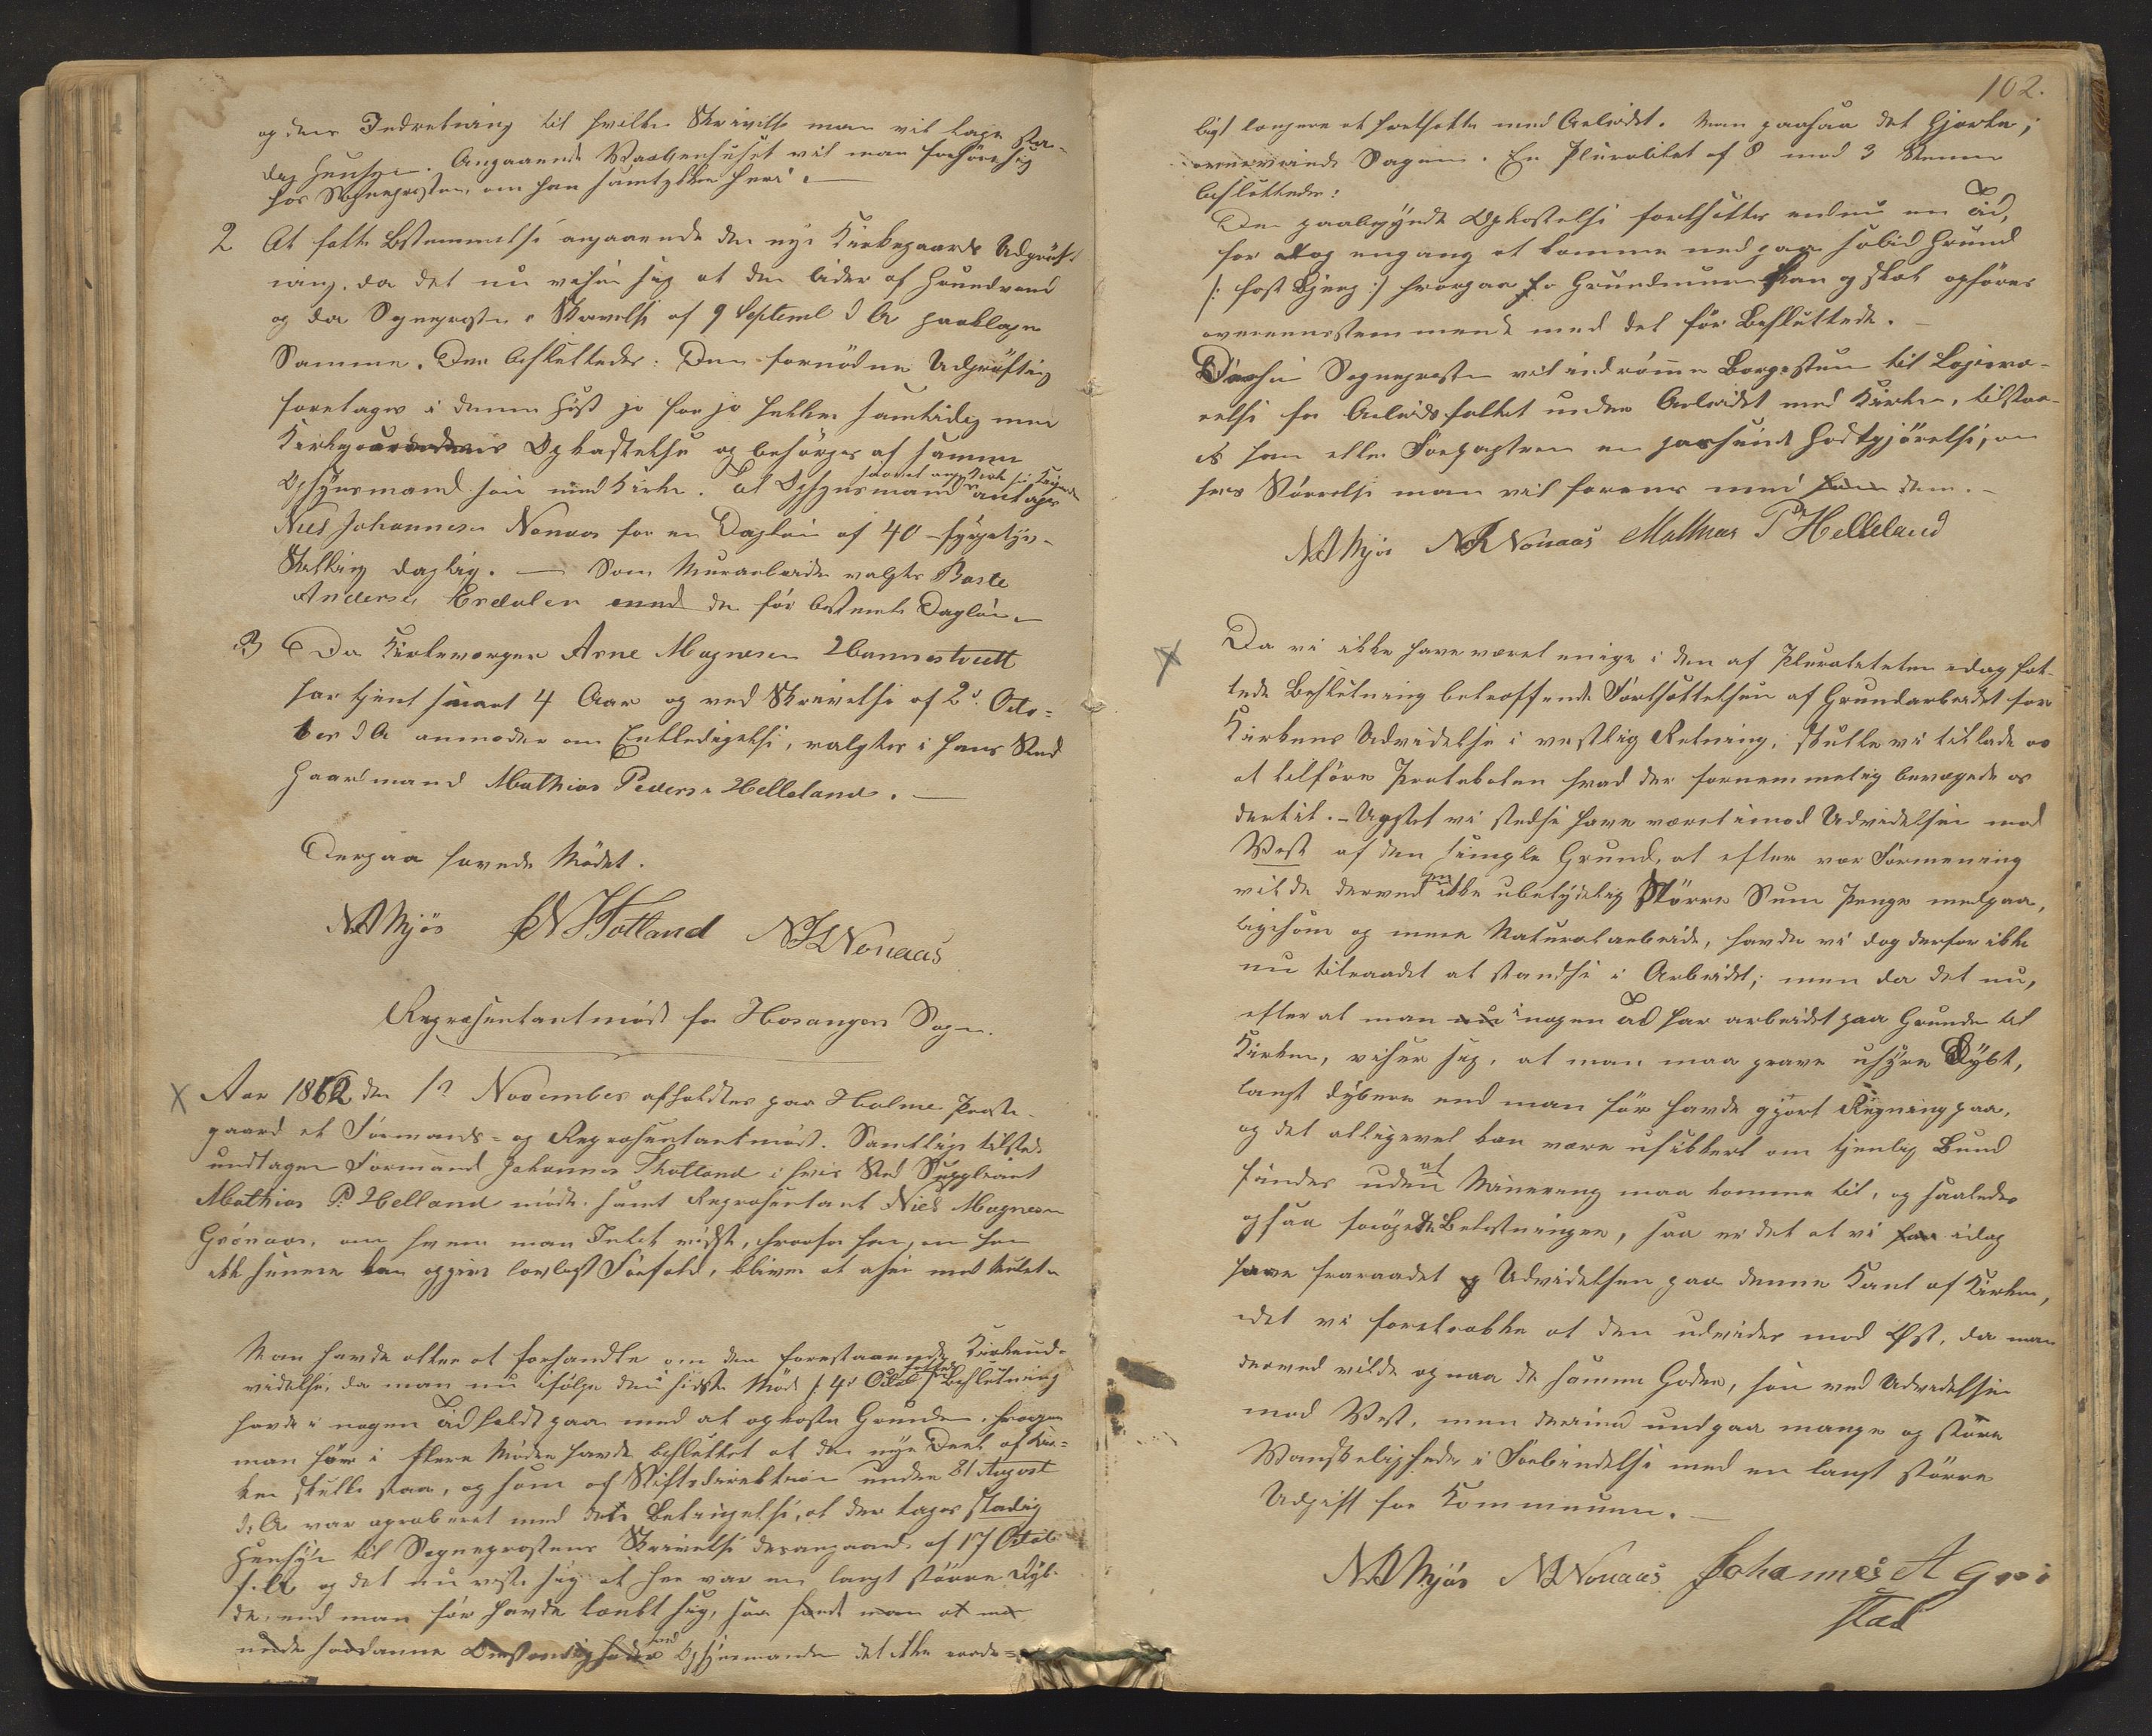 og dens Indretning til hvilken Skrivelse man vil tage sta-
dig Hensyn. Angaaende Vaabenhuset vil man forhøre sig
hos Sognepræsten, om han samtykker heri.
2 At fatte Bestemmelse angaaende den nye Kirkegaards Udgrøft-
ning, da det nu viser sig at den lider af Grundvand
og da Sognepræsten i Skrivelse af 9 Septembr d A paaklager
Samme. Der besluttedes: Den fornødne Udgrøfting
foretages i denne Høst jo før jo heller samtidig med
Kirkegaardens Opkastelse og besørges af samme
Opsynsmand som ved Kirken. Til Opsynsmand antages
Niels Johannesen Nonaas for en Dagløn af 40 – fyrgetyve –
Skilling daglig. — Som Murarbeider valgtes Baste
Andersen Erdalen med den før bestemte Dagløn.
3 Da Kirkeværger Arne Magnesen Hannestveitt
har tjent snart 4 Aar og ved Skrivelse af 2den Octo-
ber d A anmoder om Entledigelse, valgtes i hans Sted
Gaardmand Mathias Pedersen Helleland.
Derpaa hævedes Mødet.
NAMjøs JNTotland NJNonaas
Repræsentantmøde for Hosangers Sogn.
X Aar 1862 den 1ste November afholdtes paa Holme Præste-
gaard et Formands- og Repræsentantmøde. Samtlige tilstede
undtagen Formand Johannes Thotland i hvis Sted Suppleant
Mathias P. Helland mødte samt Repræsentant Niels Magnesen
Grønaas, om hvem man Intet vidste, hvorfor han, om han
ikke senere kan opgive lovligt Forfald, bliver at ansee med Mulct.
Man havde atter at forhandle om den forestaaende Kirkeud-
videlse, da man nu ifølge den sidste Møde /: 4de Octob :/ fattede Beslutning
havde i nogen Tid holdt paa med at opkaste Grunden, hvorpaa
man før i flere Møder havde besluttet at den nye Deel af Kir-
ken skulle staa, og som af Stiftsdirektionen under 21 August
d. A. var approberet med den Betingelse, at der tages stadig
Hensyn til Sognepræstens Skrivelse desangaaende af 17 Octob.
f. A. og det nu viste sig at her var en langt større Dyb-
de, end man før havde tænkt sig, saa fandt man at man
under saadanne Omstændigheder ved Opsynsmanden det ikke raade-
102.
ligt længere at fortsætte med Arbeidet. Man paasaa det Gjorte;
overveiede Sagen. En Pluralitet af 8 mod 3 Stemmer
besluttedes:
Den paabegyndte Opkastelse fortsættes endnu en Tid,
for dog engang at komme ned paa solid Grund
/: fast Bjerg :/ hvorpaa da Grundmuren kan og skal opføres
overeensstemmende med det før Besluttede.
Dersom Sognepræsten vil indrømme Borgestuen til Logivæ-
relse for Arbeidsfolket under Arbeidet med Kirken, tilstaa-
es han eller Forpagteren en passende Godtgjørelse, om
hvis Størrelse man vil forenes med dem.
NAMjøs NJNonaas Mathias P Helleland
X Da vi ikke have været enige i den af Pluraliteten idag fat-
tede Beslutning betreffende Fortsættelsen af Grundarbeidet for
Kirkens Udvidelse i vestlig Retning, skulle vi tillade os
at tilføre Protokolen hvad der fornemmelig bevægede os
dertil. – Uagtet vi stedse have været imod Udvidelsen mod
Vest af den simple Grund, at efter vor Formening
vilde derved en ikke ubetydelig større Sum Penge medgaa,
ligesom og mere Naturalarbeide, havde vi dog derfor ikke
nu tilraadet at standse i Arbeidet; men da det nu,
efter at man i nogen Tid har arbeidet paa Grunden til
Kirken, viser sig, at man maa grave uhyre Dybt,
langt dybere end man før havde gjort Regning paa,
og det alligevel kan være usikkert om tjenlig Bund
findes uden at Minering maa komme til, og saaledes
ogsaa forøgede Bekostninger, saa er det at vi idag
have fraraadet Udvidelsen paa denne Kant af Kirken,
idet vi foretrække at den udvides mod Øst, da man
derved vilde opnaa de samme Goder, som ved Udvidelsen
mod Vest, men derimod undgaa mange og større
Vanskeligheder i Forbindelse med en langt større
Udgift for Kommunen.
NAMjøs NJNonaas Johannes A Gri
stad